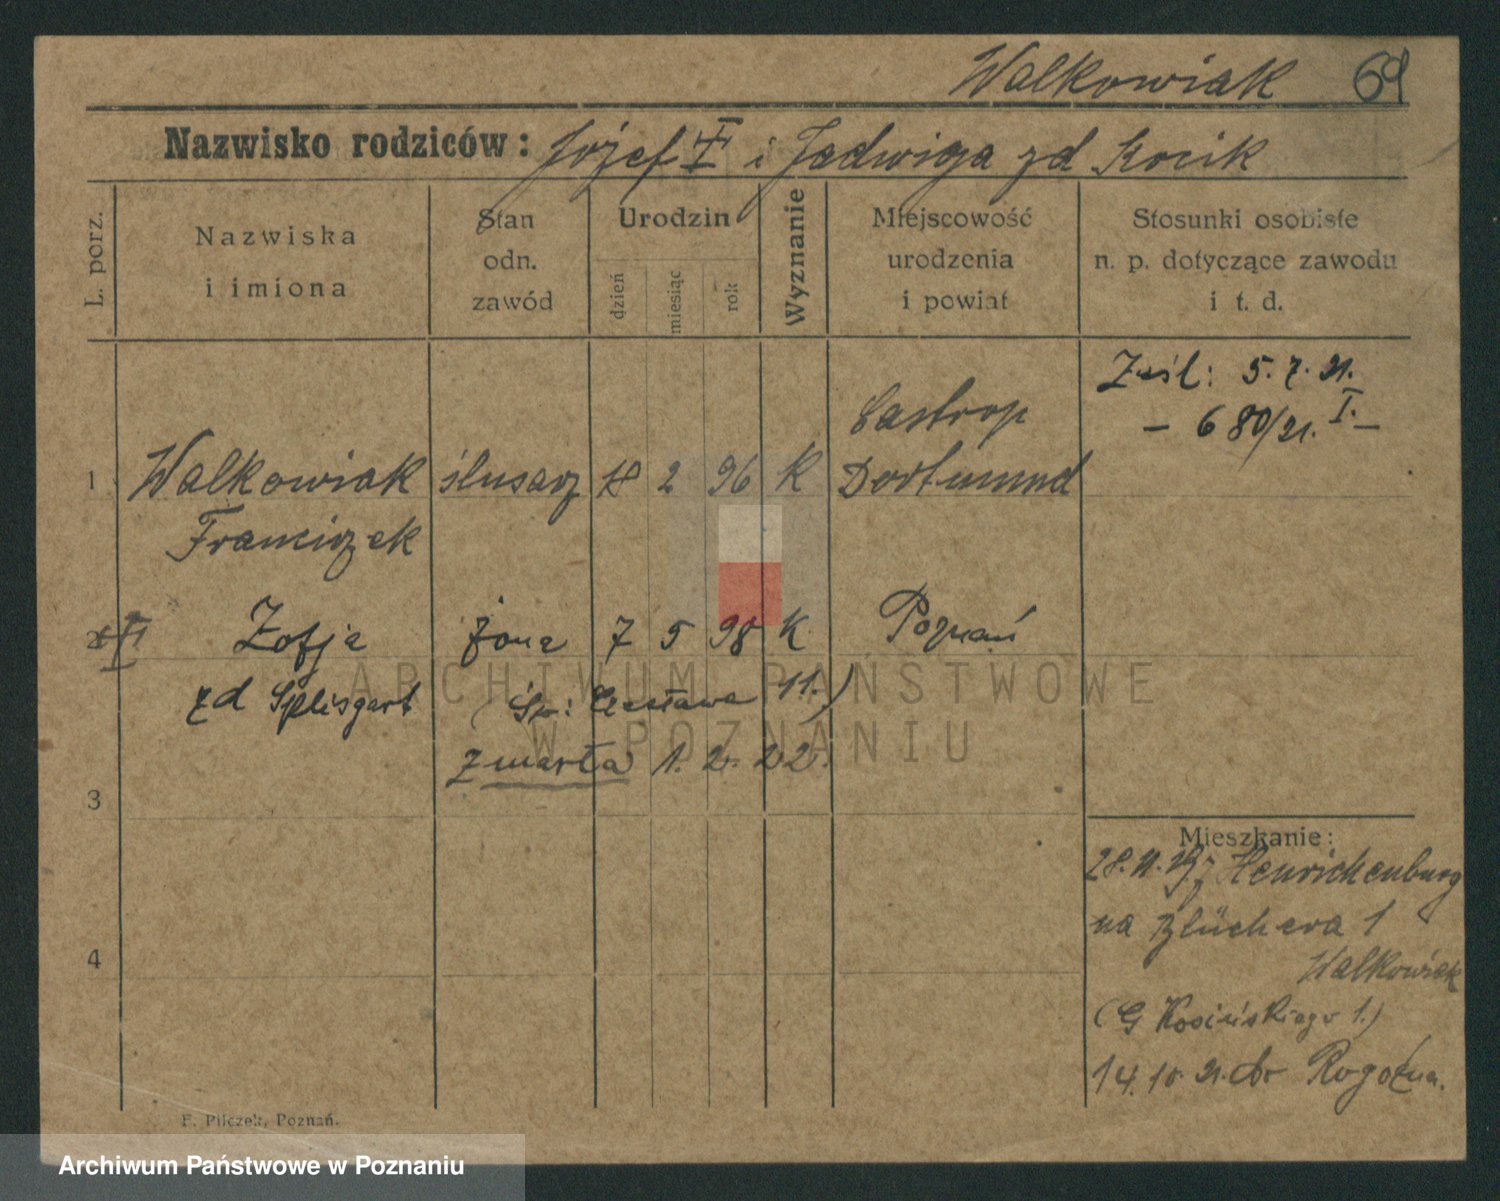 Walkowiak 69
Nazwisko rodziców: Józef i Jadwiga zd Kocik
L. porz.
Nazwiska i imiona
Stan odn. zawód
Urodzin
dzień
miesiąc
rok
Wyznanie
Miejscowość urodzenia i powiat
Stosunki osobiste n. p. dotyczące zawodu i t. d.
Zaśl: 5. 7. 21.
– 680/21. I. –
Castrop
1 Walkowiak ślusarz 18 2 96 K Dortmund
Franciszek
2 Zofja żona 7 5 98 K Poznań
zd Splisgart (Św: Czesława 11.)
zmarła 1. 2. 22.
3
Mieszkanie:
28.11.19 z Henrichenburg
na Blüchera 1
Walkowiak
4
(G Kosińskiego 1.)
14. 10. 21. do Rogoźna.
F. Pilczek, Poznań.
ARCHIWUM PAŃSTWOWE
W POZNANIU
Archiwum Państwowe w Poznaniu